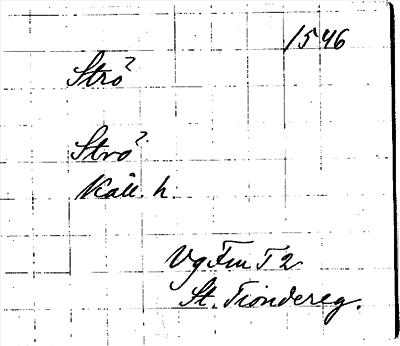 1546
Strö?
Strö?
Kåll. h.
Vg Fm T 2
St. Tiondereg.